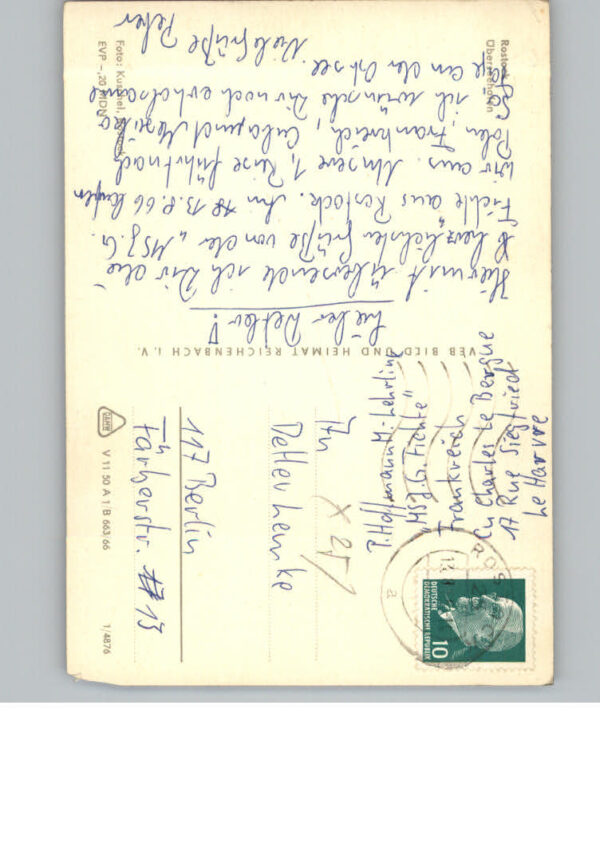 Rostock
Überseehafen
Lieber Detlev!
Hiermit übersende ich Dir die
herzlichsten Grüße von der „MS J. G.
Fichte" aus Rostock. Am 13.8.66 laufen
wir aus. Unsere 1. Reise führt nach
Polen, Frankreich, Cuba und Mexiko
ich wünsche Dir noch erholsame
Tage an der Ostsee.
Viele Grüße Peter
Foto: Kuschel, Rostock
EVP -,20 MDN
VEB BILD UND HEIMAT REICHENBACH I. V.
P. Hoffmann M.-Lehrling
"MS J G. Fichte"
Frankreich
C/o Charles Le Borgne
17 Rue Siegfried
Le Havre
An
Detlev Lemke
117 Berlin
Färberstr. 13
X 25/
10
DEUTSCHE
DEMOKRATISCHE REPUBLIK
ROSTOCK
a
V 11 50 A 1 B 663/66
1/4876